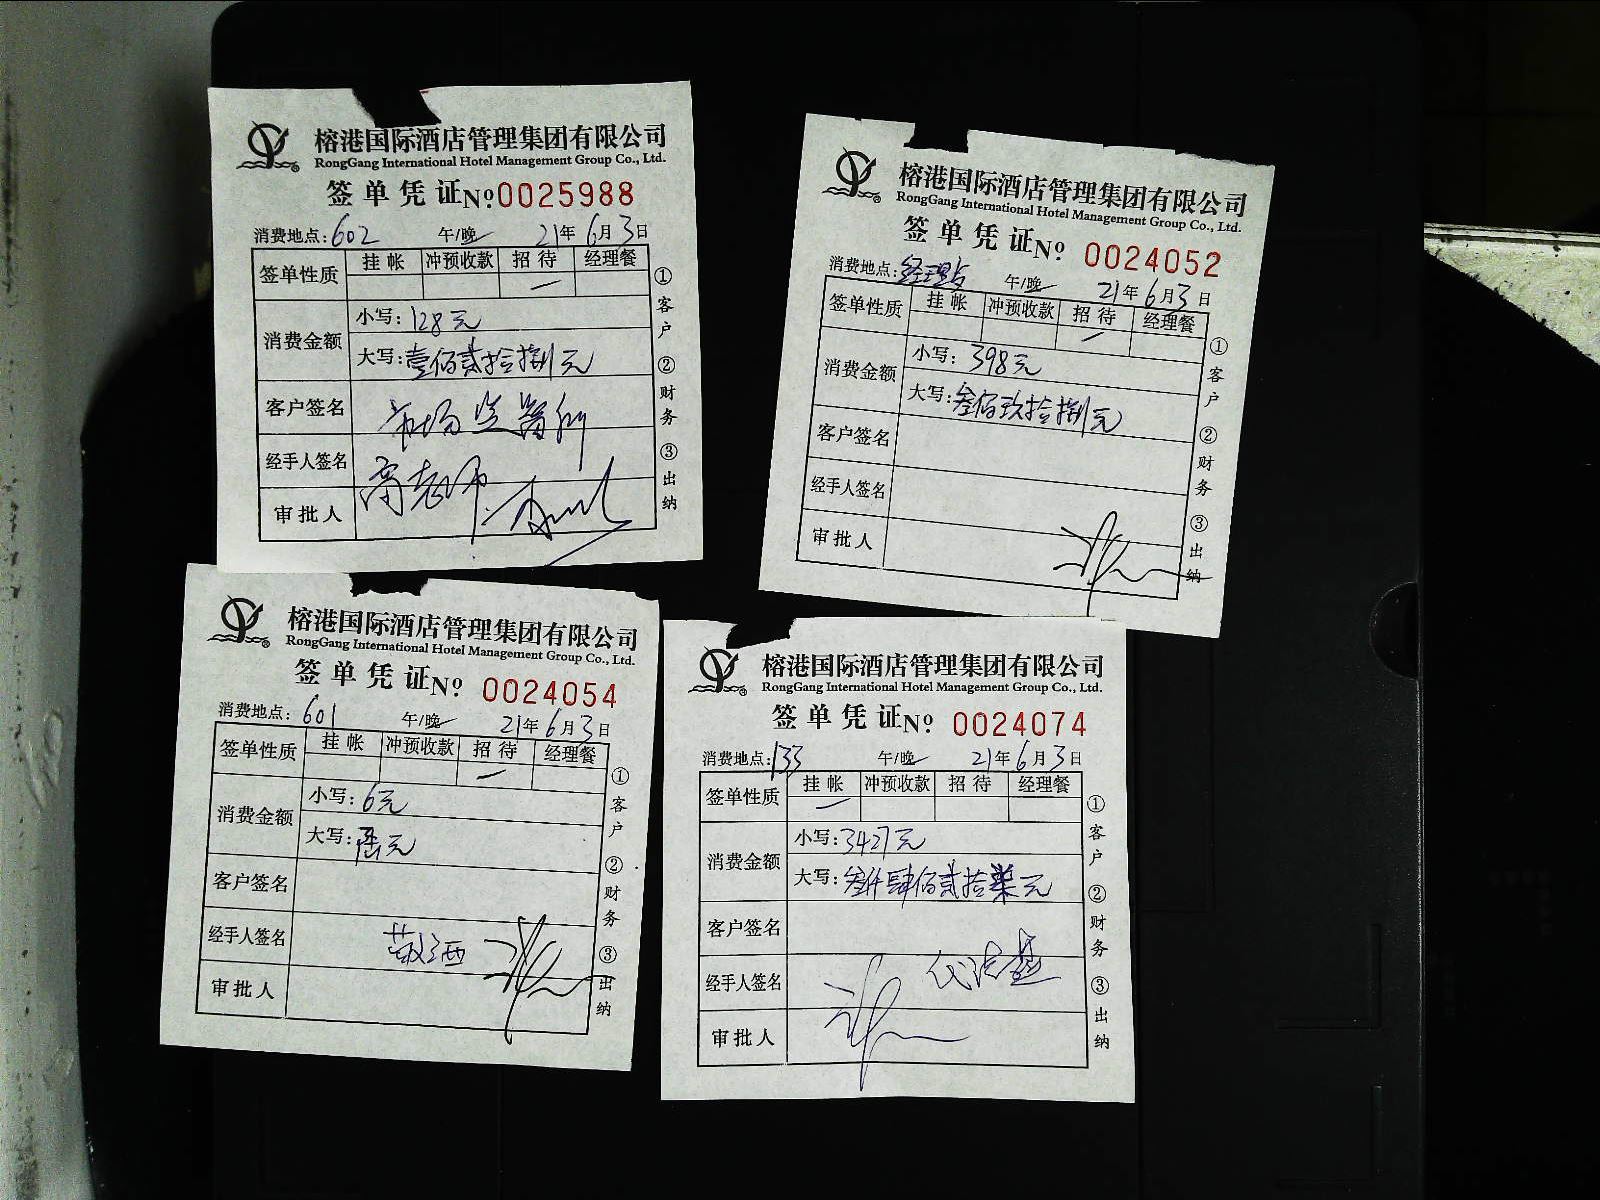 榕港国际酒店管理集团有限公司
RongGang International Hotel Management Group Co., Ltd.
签单凭证 No 0025988
消费地点:602 午/晚 21年6月3日
签单性质 挂帐 冲预收款 招待 经理餐
消费金额
小写:128元
大写:壹佰贰拾捌元
客户签名 市场监督所
经手人签名
审批人
①客户 ②财务 ③出纳
榕港国际酒店管理集团有限公司
RongGang International Hotel Management Group Co., Ltd.
签单凭证 No 0024052
消费地点:经理 午/晚 21年6月3日
签单性质 挂帐 冲预收款 招待 经理餐
消费金额
小写:398元
大写:叁佰玖拾捌元
客户签名
经手人签名
审批人
①客户 ②财务 ③出纳
榕港国际酒店管理集团有限公司
RongGang International Hotel Management Group Co., Ltd.
签单凭证 No 0024054
消费地点:601 午/晚 21年6月3日
签单性质 挂帐 冲预收款 招待 经理餐
消费金额
小写:6元
大写:陆元
客户签名
经手人签名
审批人
①客户 ②财务 ③出纳
榕港国际酒店管理集团有限公司
RongGang International Hotel Management Group Co., Ltd.
签单凭证 No 0024074
消费地点:133 午/晚 21年6月3日
签单性质 挂帐 冲预收款 招待 经理餐
消费金额
小写:3427元
大写:叁仟肆佰贰拾柒元
客户签名
经手人签名
审批人
①客户 ②财务 ③出纳